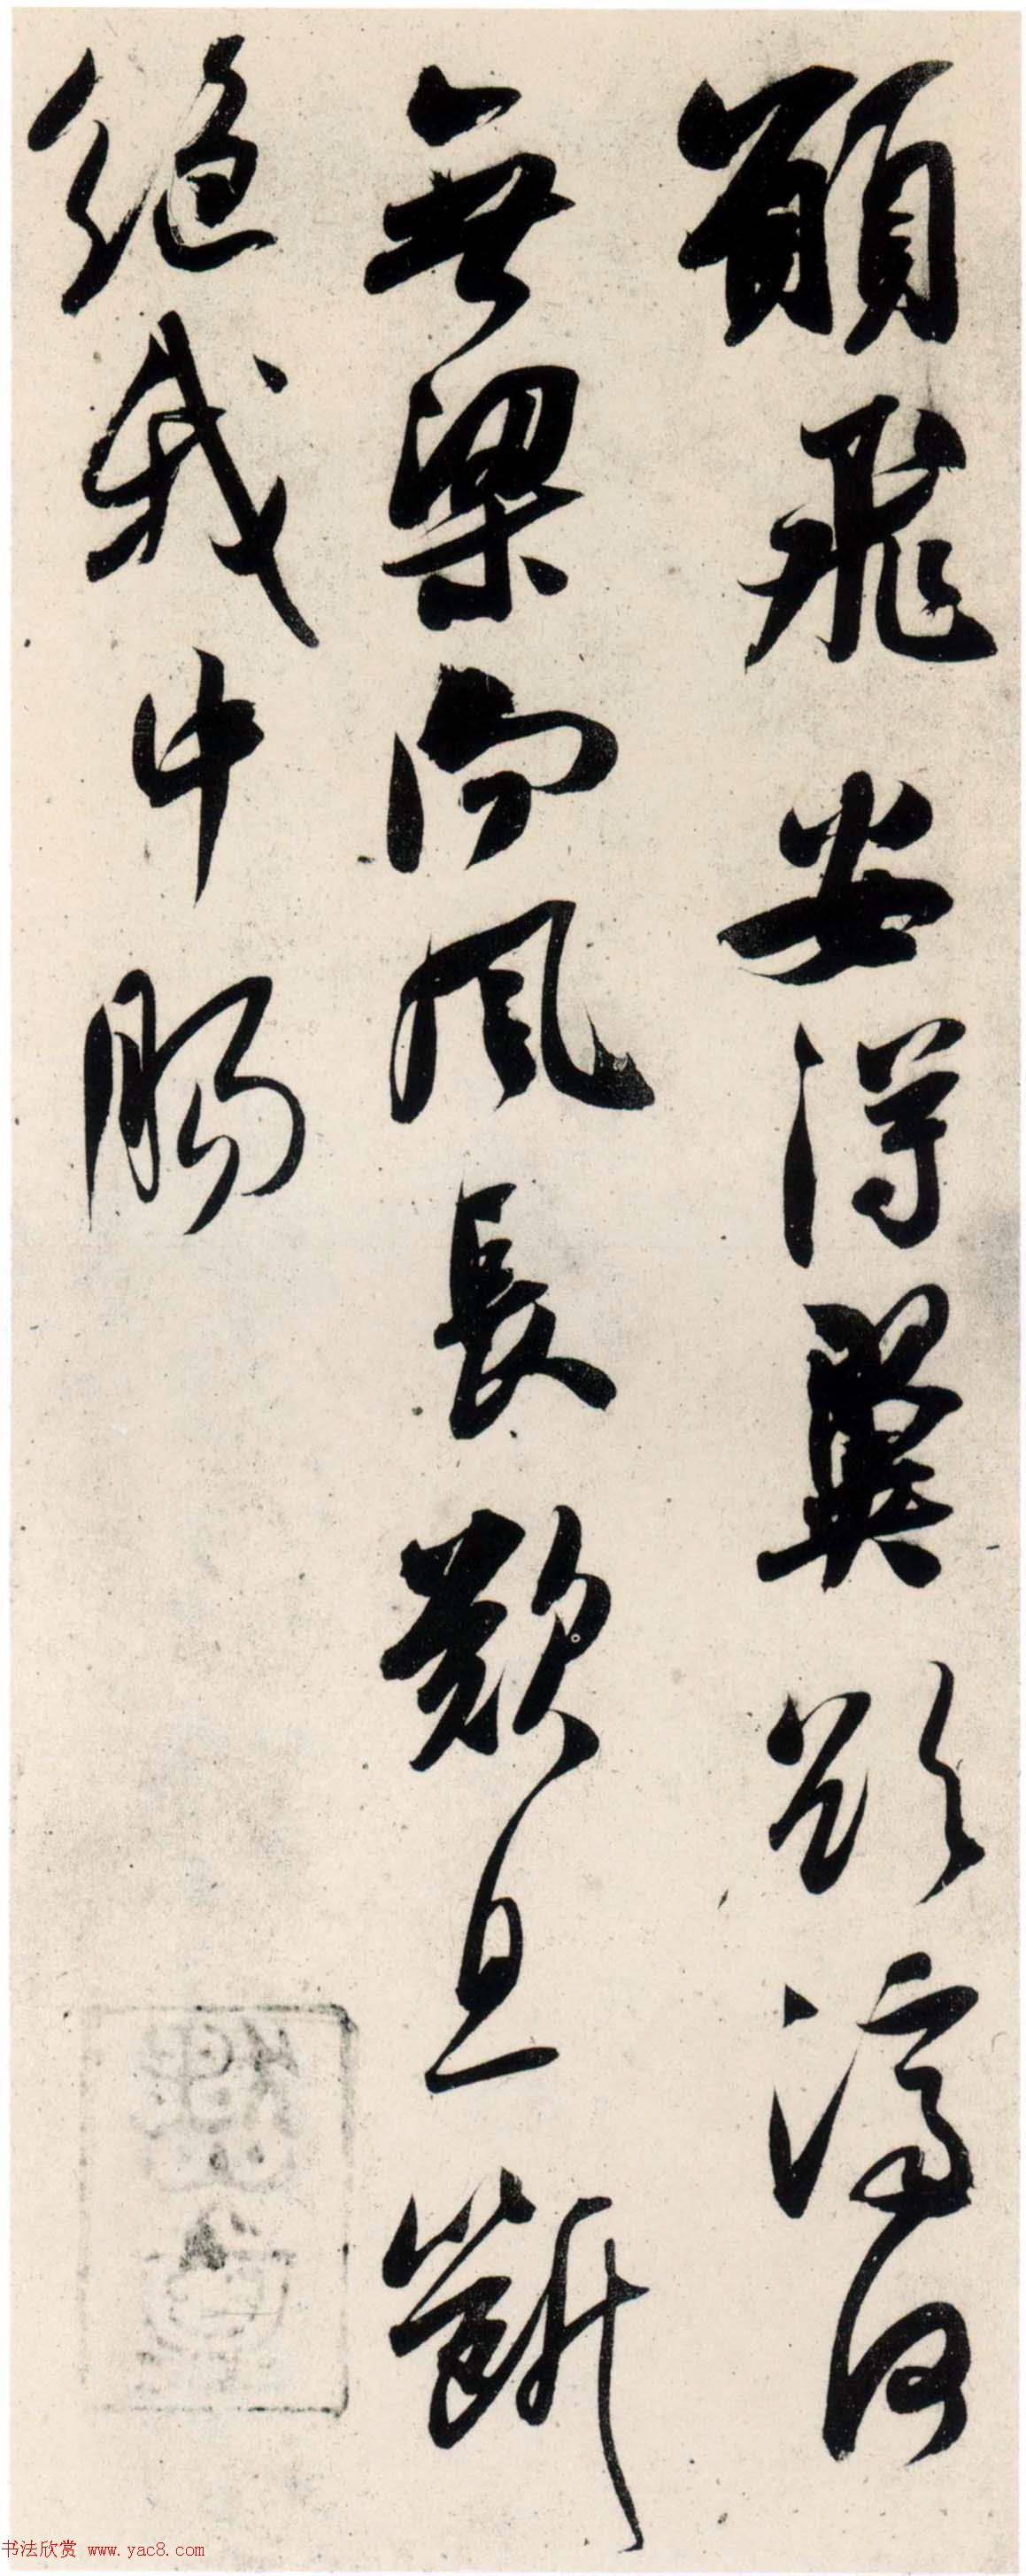 願飛安得翼欲濟河
無梁向風長歎息斷
絕我中腸
书法欣赏 www.yac8.com